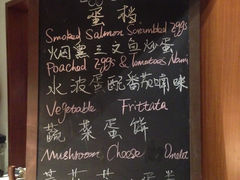 蛋档
Smoked Salmon Scrambled Eggs
烟熏三文鱼炒蛋
Poached Eggs & Tomatoes Nami
水波蛋配番茄喃咪
Vegetable Frittata
蔬菜蛋饼
Mushroom Cheese Omelet